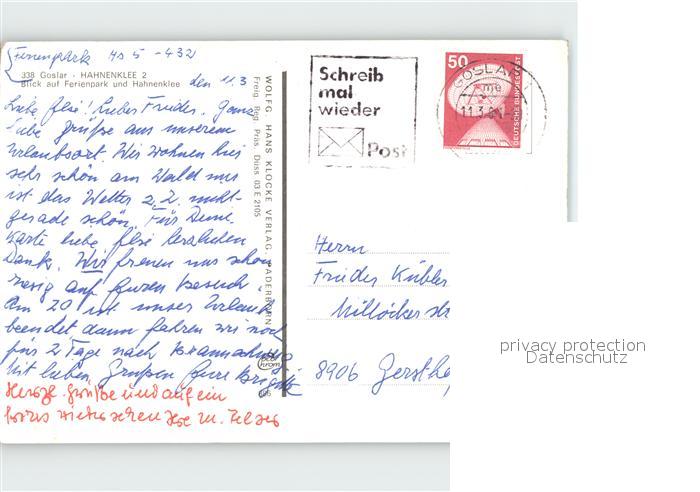 Ferienpark Hs 5 - 432
338 Goslar - HAHNENKLEE 2
Blick auf Ferienpark und Hahnenklee
den 11.3.
Liebe Else! Lieber Frieder. Ganz
liebe Grüße aus unserem
Urlaubsort. Wir wohnen hier
sehr schön am Wald nur
ist das Wetter z.Z. nicht
gerade schön. Für Deine
Karte liebe Else herzlichen
Dank. Wir freuen uns schon
riesig auf Euren Besuch.
Am 20 ist unser Urlaub
beendet dann fahren wir noch
für 2 Tage nach Braunschweig
Mit lieben Grüßen Eure Brigitte
Herzl. Grüße und auf ein
wiedersehen
WOLFG. HANS KLOCKE VERLAG PADERBORN
Freig. Reg. Präs. Düss. 03 E 2105
Schreib
mal
wieder
Post
50
DEUTSCHE BUNDESPOST
GOSLAR
me
11.3.
Herrn
Frieder Kübler
Millöcker
8906 Gerstho
privacy protection
Datenschutz